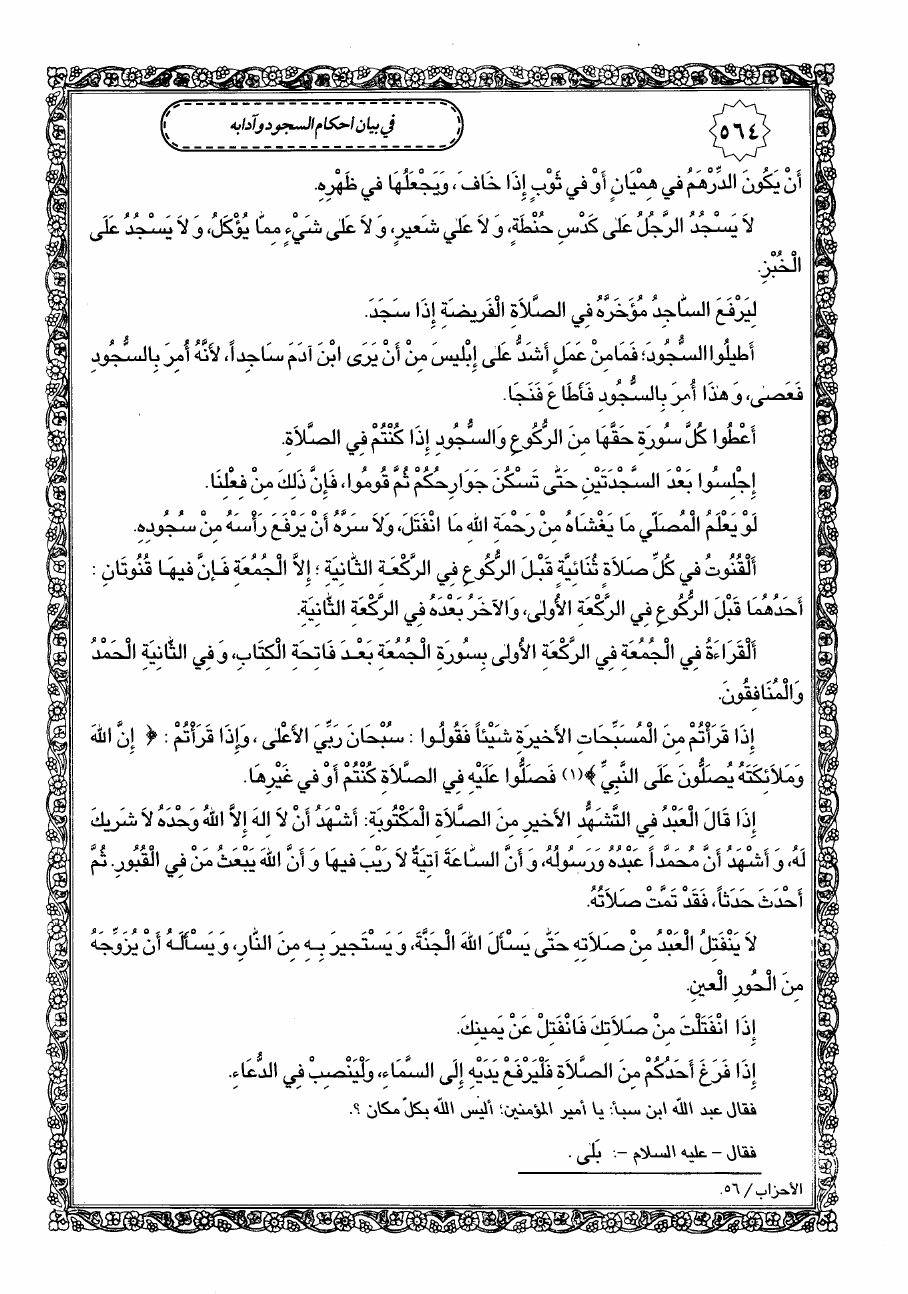 ٥٦٤
في بيان أحكام السجود وآدابه
أَنْ يَكُونَ الدِّرْهَمُ في هِمْيَانٍ أَوْ في ثَوْبٍ إِذَا خَافَ، وَيَجْعَلُهَا في ظَهْرِهِ.
لاَ يَسْجُدُ الرَّجُلُ عَلىٰ كَدْسِ حُنْطَةٍ، وَ لاَ عَلىٰ شَعيرٍ، وَ لاَ عَلىٰ شَيْءٍ مِمّا يُؤْكَلُ، وَ لاَ يَسْجُدُ عَلَى
الْخُبْزِ.
لِيَرْفَعَ السّاجِدُ مُؤَخَّرَهُ فِي الصَّلاَةِ الْفَريضَةِ إِذَا سَجَدَ.
أَطيلُوا السُّجُودَ؛ فَمَا مِنْ عَمَلٍ أَشَدُّ عَلىٰ إِبْليسَ مِنْ أَنْ يَرَى ابْنَ آدَمَ سَاجِداً، لأَنَّهُ أُمِرَ بِالسُّجُودِ
فَعَصىٰ، وَ هٰذَا أُمِرَ بِالسُّجُودِ فَأَطَاعَ فَنَجَا.
أَعْطُوا كُلَّ سُورَةٍ حَقَّهَا مِنَ الرُّكُوعِ وَالسُّجُودِ إِذَا كُنْتُمْ فِي الصَّلاَةِ.
إِجْلِسُوا بَعْدَ السَّجْدَتَيْنِ حَتّىٰ تَسْكُنَ جَوَارِحُكُمْ ثُمَّ قُومُوا، فَإِنَّ ذَلِكَ مِنْ فِعْلِنَا.
لَوْ يَعْلَمُ الْمُصَلّي مَا يَغْشَاهُ مِنْ رَحْمَةِ اللّهِ مَا انْفَتَلَ، وَلاَ سَرَّهُ أَنْ يَرْفَعَ رَأْسَهُ مِنْ سُجُودِهِ.
أَلْقُنُوتُ في كُلِّ صَلاَةٍ ثُنَائِيَّةٍ قَبْلَ الرُّكُوعِ فِي الرَّكْعَةِ الثّانِيَةِ ؛ إِلاَّ الْجُمُعَةِ فَإِنَّ فيهَا قُنُوتَانِ :
أَحَدُهُمَا قَبْلَ الرُّكُوعِ فِي الرَّكْعَةِ الأُولىٰ، وَالآخَرُ بَعْدَهُ فِي الرَّكْعَةِ الثّانِيَةِ.
أَلْقَرَاءَةُ فِي الْجُمُعَةِ فِي الرَّكْعَةِ الأُولىٰ بِسُورَةِ الْجُمُعَةِ بَعْدَ فَاتِحَةِ الْكِتَابِ، وَ فِي الثّانِيَةِ الْحَمْدُ
وَالْمُنَافِقُونَ.
إِذَا قَرَأْتُمْ مِنَ الْمُسَبِّحَاتِ الأَخيرَةِ شَيْئاً فَقُولُوا : سُبْحَانَ رَبِّيَ الأَعْلىٰ ، وَإِذَا قَرَأْتُمْ : ﴿ إِنَّ اللّهَ
وَمَلاَئِكَتَهُ يُصَلُّونَ عَلَى النَّبِيِّ ﴾(١) فَصَلُّوا عَلَيْهِ فِي الصَّلاَةِ كُنْتُمْ أَوْ في غَيْرِهَا.
إِذَا قَالَ الْعَبْدُ فِي التَّشَهُّدِ الأَخيرِ مِنَ الصَّلاَةِ الْمَكْتُوبَةِ: أَشْهَدُ أَنْ لاَ إِلهَ إِلاَّ اللّهُ وَحْدَهُ لاَ شَريكَ
لَهُ، وَ أَشْهَدُ أَنَّ مُحَمَّداً عَبْدُهُ وَرَسُولُهُ، وَ أَنَّ السّاعَةَ آتِيَةٌ لاَ رَيْبَ فيهَا وَ أَنَّ اللّهَ يَبْعَثُ مَنْ فِي الْقُبُورِ. ثُمَّ
أَحْدَثَ حَدَثاً، فَقَدْ تَمَّتْ صَلاَتُهُ.
لاَ يَنْفَتِلُ الْعَبْدُ مِنْ صَلاَتِهِ حَتّىٰ يَسْأَلَ اللّهَ الْجَنَّةَ، وَ يَسْتَجيرَ بِهِ مِنَ النّارِ، وَ يَسْأَلَهُ أَنْ يُزَوِّجَهُ
مِنَ الْحُورِ الْعينِ.
إِذَا انْفَتَلْتَ مِنْ صَلاَتِكَ فَانْفَتِلْ عَنْ يَمينِكَ.
إِذَا فَرَغَ أَحَدُكُمْ مِنَ الصَّلاَةِ فَلْيَرْفَعْ يَدَيْهِ إِلَى السَّمَاءِ، وَلْيَنْصِبْ فِي الدُّعَاءِ.
فقال عبد اللّه ابن سبأ: يا أمير المؤمنين؛ أليس اللّه بكلّ مكان ؟.
فقال – عليه السلام –: بَلىٰ .
الأحزاب / ٥٦.